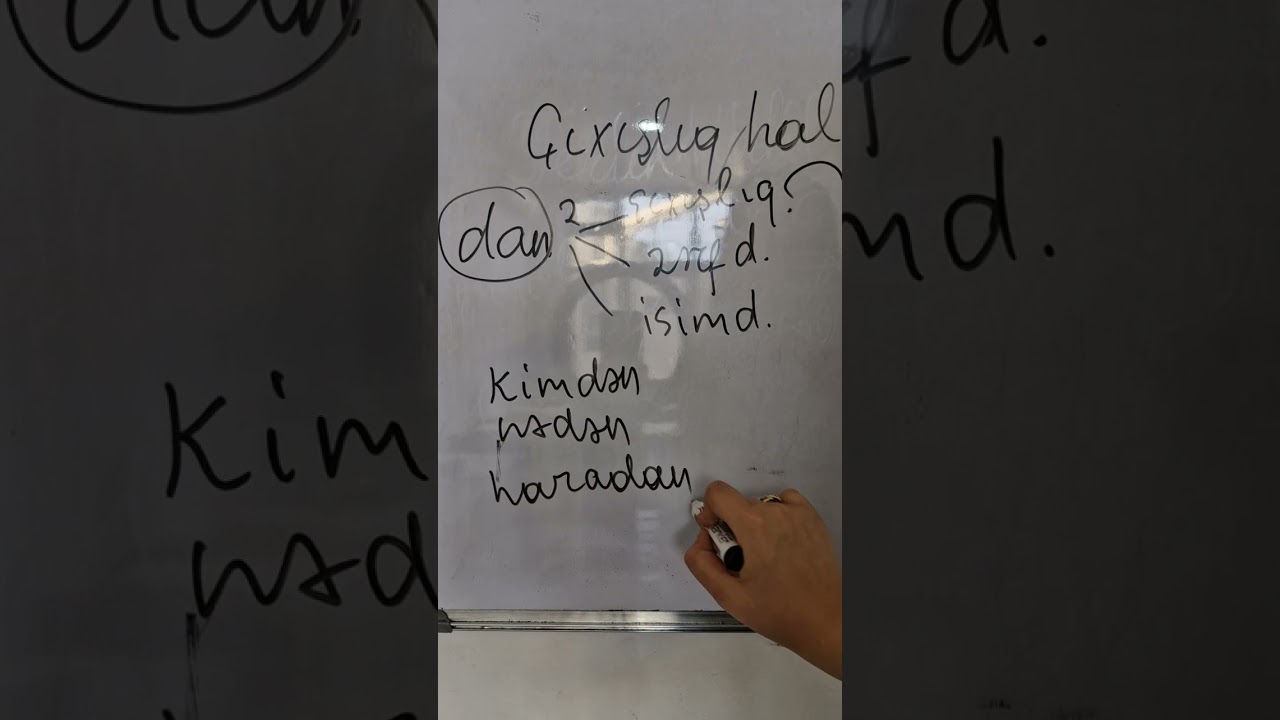 Çıxışlıq hal
dan² çıxışlıq?
zərf d.
isim d.
Kimdən
nədən
haradan